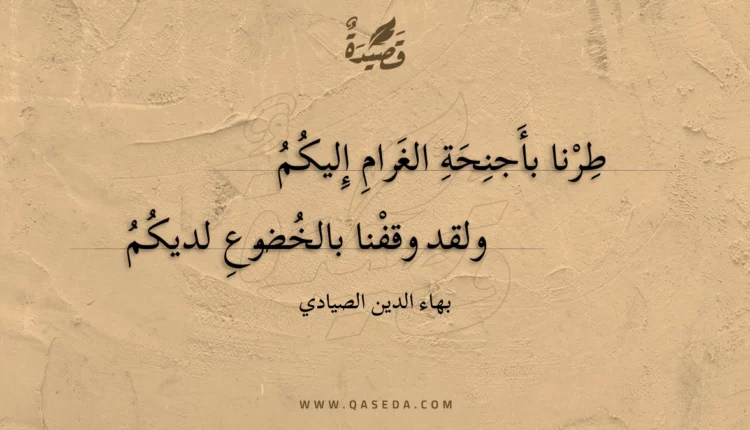 قَصِيدَةٌ
طِرْنا بأَجنِحَةِ الغَرامِ إِليكُمُ
ولقد وقفْنا بالخُضوعِ لديكُمُ
بهاء الدين الصيادي
WWW.QASEDA.COM